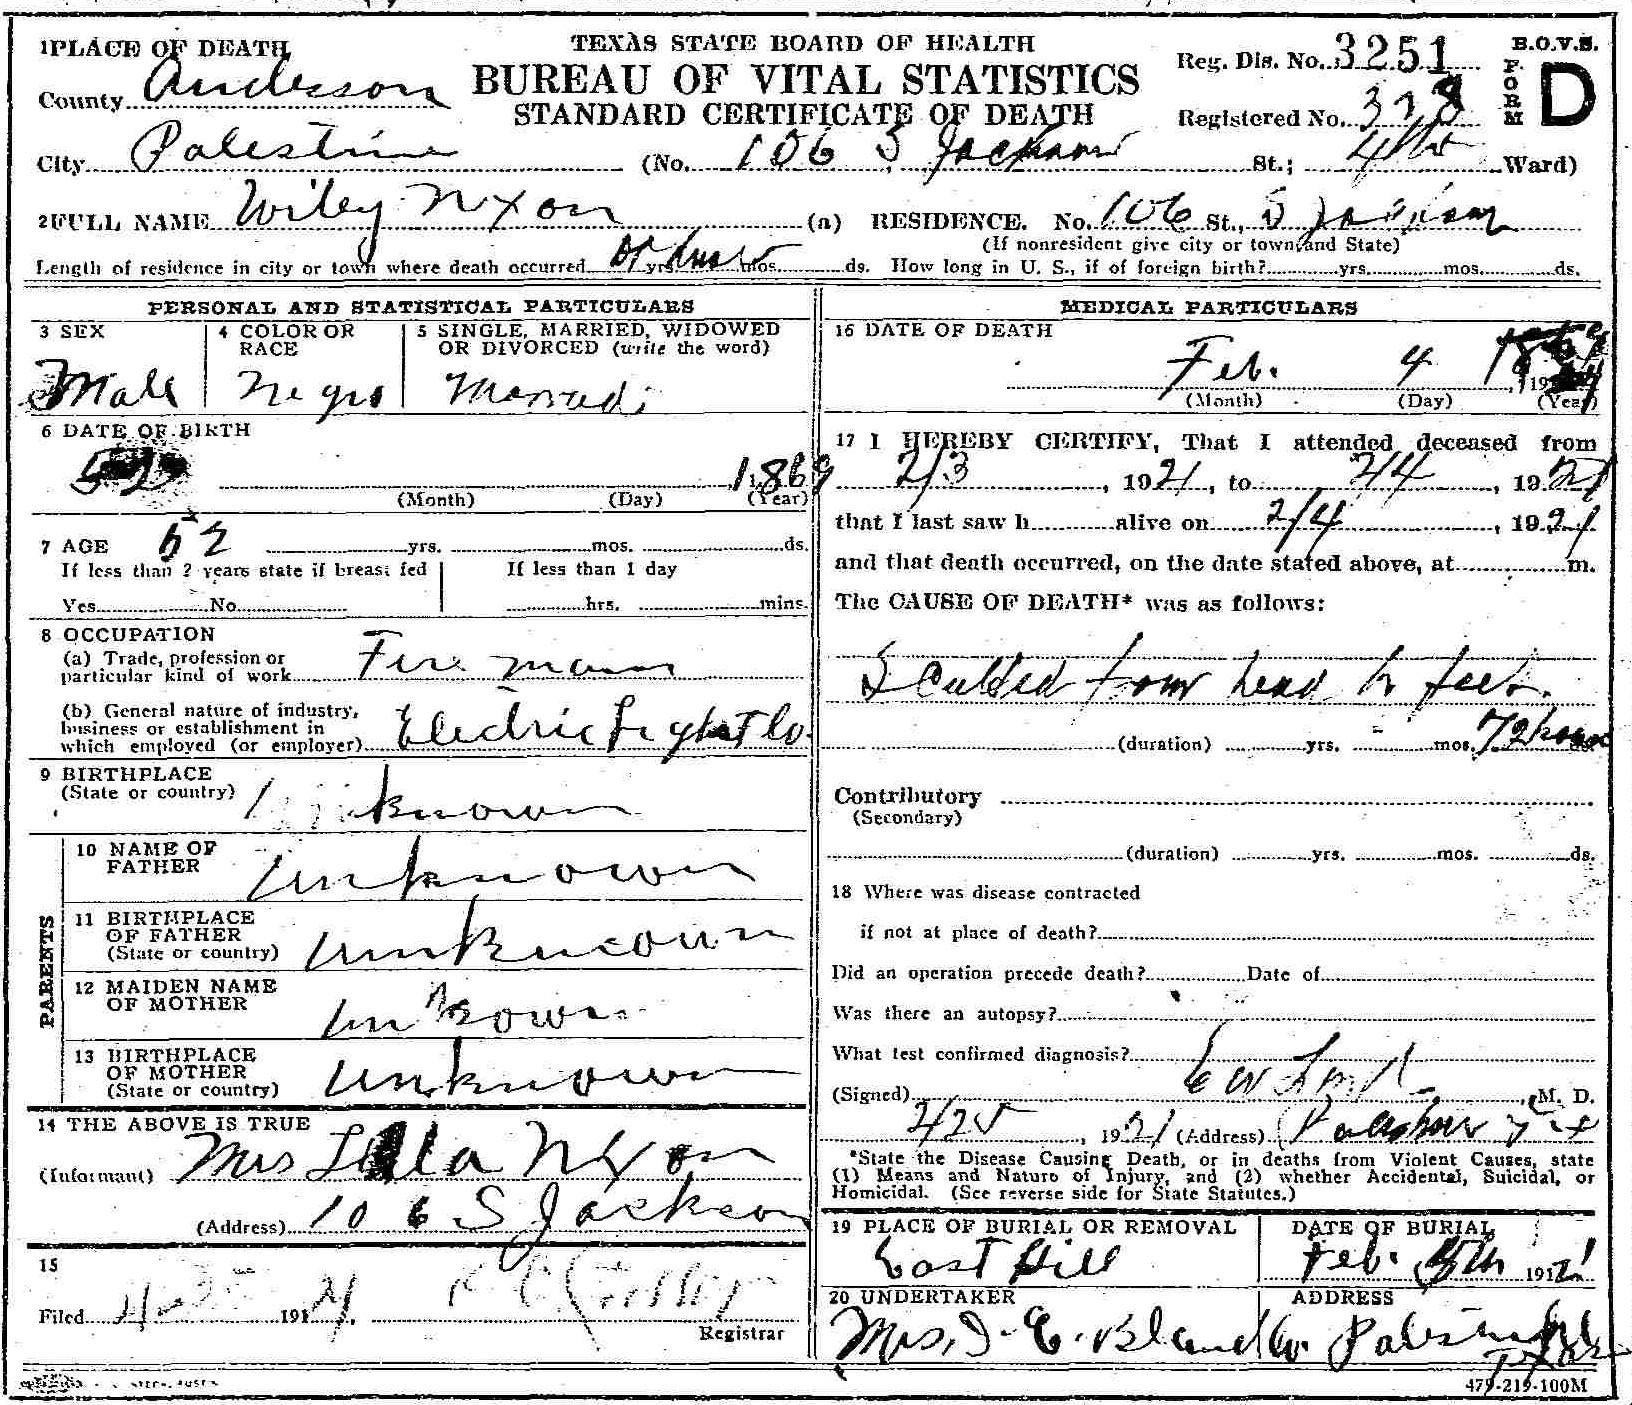 1 PLACE OF DEATH
TEXAS STATE BOARD OF HEALTH
BUREAU OF VITAL STATISTICS
STANDARD CERTIFICATE OF DEATH
Reg. Dis. No. 3251
B.O.V.S.
FORM D
County Anderson
Registered No.
City Palestine (No. 106 S Jackson St.; 4th Ward)
2 FULL NAME Wiley Nixon (a) RESIDENCE. No. 106 St., S Jackson
(If nonresident give city or town and State)
Length of residence in city or town where death occurred yrs. mos. ds. How long in U. S., if of foreign birth? yrs. mos. ds.
PERSONAL AND STATISTICAL PARTICULARS
3 SEX
Male
4 COLOR OR RACE
Negro
5 SINGLE, MARRIED, WIDOWED
OR DIVORCED (write the word)
Married
6 DATE OF BIRTH
52 1869
(Month) (Day) (Year)
7 AGE 52 yrs. mos. ds.
If less than 2 years state if breast fed
Yes No
If less than 1 day
hrs. mins.
8 OCCUPATION
(a) Trade, profession or
particular kind of work Fireman
(b) General nature of industry,
business or establishment in
which employed (or employer) Electric Light Co.
9 BIRTHPLACE
(State or country) Unknown
PARENTS
10 NAME OF
FATHER Unknown
11 BIRTHPLACE
OF FATHER
(State or country) Unknown
12 MAIDEN NAME
OF MOTHER Unknown
13 BIRTHPLACE
OF MOTHER
(State or country) Unknown
14 THE ABOVE IS TRUE
(Informant) Mrs Lula Nixon
(Address) 106 S Jackson
15
Filed 191
Registrar
MEDICAL PARTICULARS
16 DATE OF DEATH
Feb. 4
(Month) (Day) (Year)
17 I HEREBY CERTIFY, That I attended deceased from
2/3, 1921, to 2/4, 1921
that I last saw h alive on 2/4, 1921
and that death occurred, on the date stated above, at m.
The CAUSE OF DEATH* was as follows:
Scalded from head to feet.
(duration) yrs. mos. 72 hours
Contributory
(Secondary)
(duration) yrs. mos. ds.
18 Where was disease contracted
if not at place of death?
Did an operation precede death? Date of
Was there an autopsy?
What test confirmed diagnosis?
(Signed) M. D.
2/25, 1921 (Address) Palestine Tex
*State the Disease Causing Death, or in deaths from Violent Causes, state
(1) Means and Nature of Injury, and (2) whether Accidental, Suicidal, or
Homicidal. (See reverse side for State Statutes.)
19 PLACE OF BURIAL OR REMOVAL
East Hill
DATE OF BURIAL
Feb. 5th 1921
20 UNDERTAKER
Mrs. J. E. Bland Co.
ADDRESS
Palestine
Texas
479-219-100M